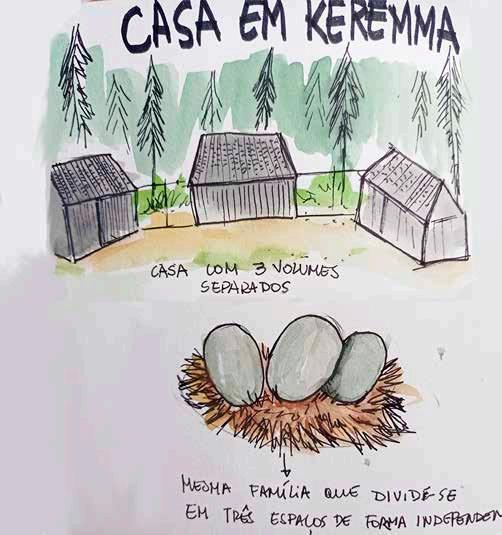 CASA EM KEREMMA
CASA COM 3 VOLUMES
SEPARADOS
MESMA FAMÍLIA QUE DIVIDE-SE
EM TRÊS ESPAÇOS DE FORMA INDEPENDEN